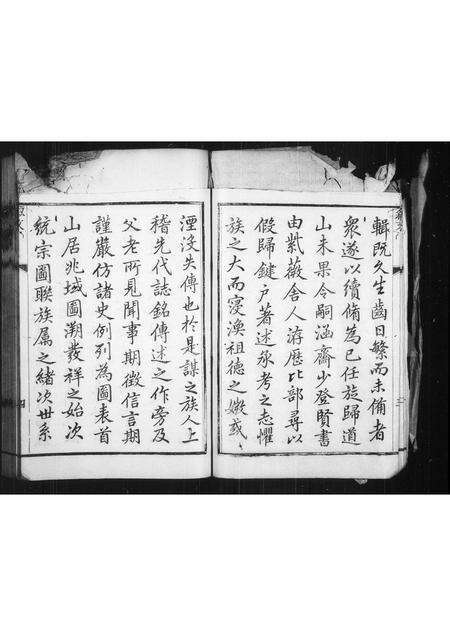 輯既久生齒日繁而未脩者
衆遂以續脩為己任旋歸道
山未果令嗣涵齋少登賢書
由紫薇舍人洊歷比部尋以
假歸鍵户著述承考之志懼
族之大而寖渙祖德之嫩或
湮沒失傳也於是謀之族人上
稽先代誌銘傳述之作旁及
父老所見聞事期徵信言期
謹嚴仿諸史例列為圖表首
山居兆域圖溯發祥之始次
統宗圖聯族属之緒次世系